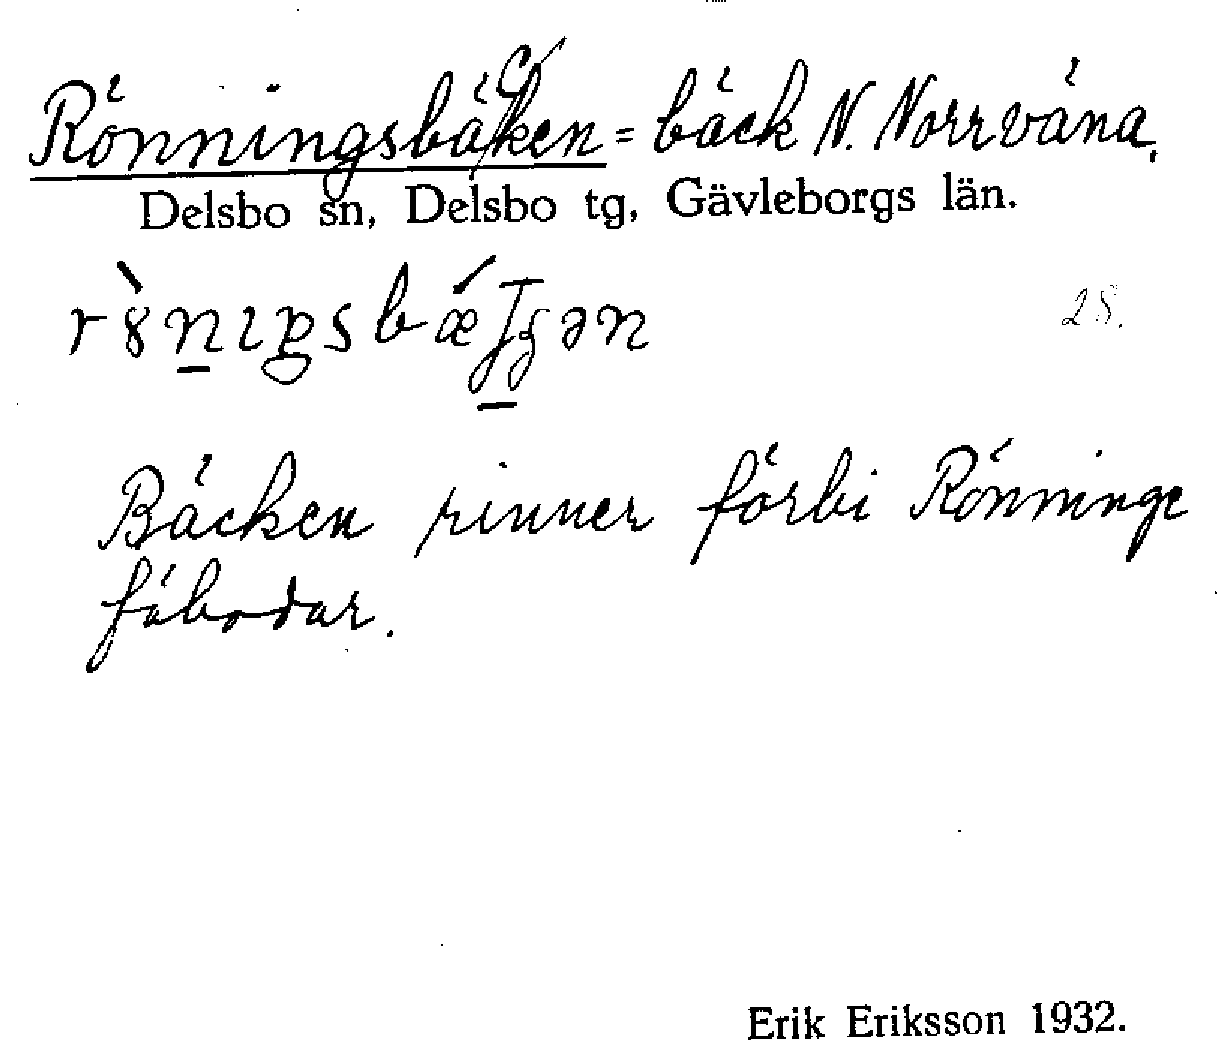 Rönningsbäcken = bäck N. Norrväna.
Delsbo sn, Delsbo tg, Gävleborgs län.
28.
Bäcken rinner förbi Rönninge
fäbodar.
Erik Eriksson 1932.